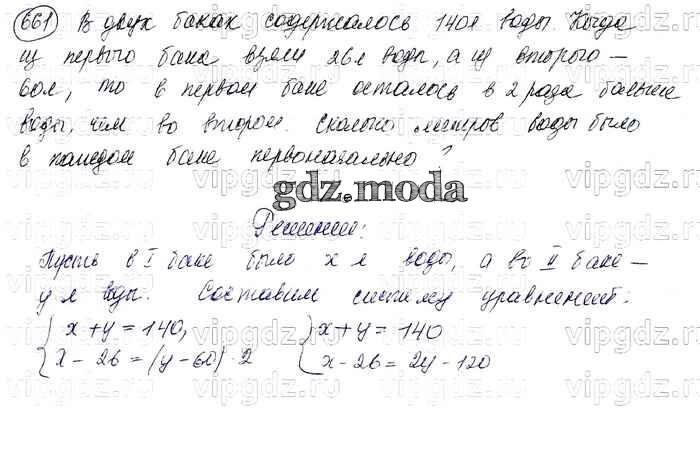 661 В двух баках содержалось 140л воды. Когда
из первого бака взяли 26л воды, а из второго –
60л, то в первом баке осталось в 2 раза больше
воды, чем во втором. Сколько литров воды было
в каждом баке первоначально?
gdz.moda
Решение:
Пусть в I баке было x л воды, а во II баке –
y л воды. Составим систему уравнений:
{ x + y = 140, { x + y = 140
{ x – 26 = (y – 60) · 2 { x – 26 = 2y – 120
vipgdz.ru